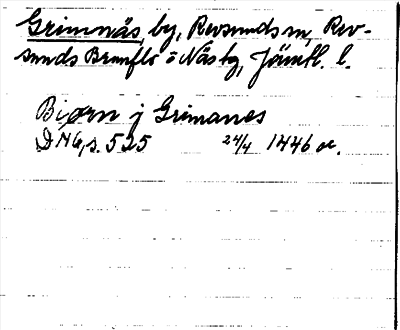 Grimnäs by, Revsunds sn, Rev-
sunds Brunflo o Näs tg, Jämtl. l.
Biørn j Grimanes
DN 16, s. 525 24/4 1446 or.